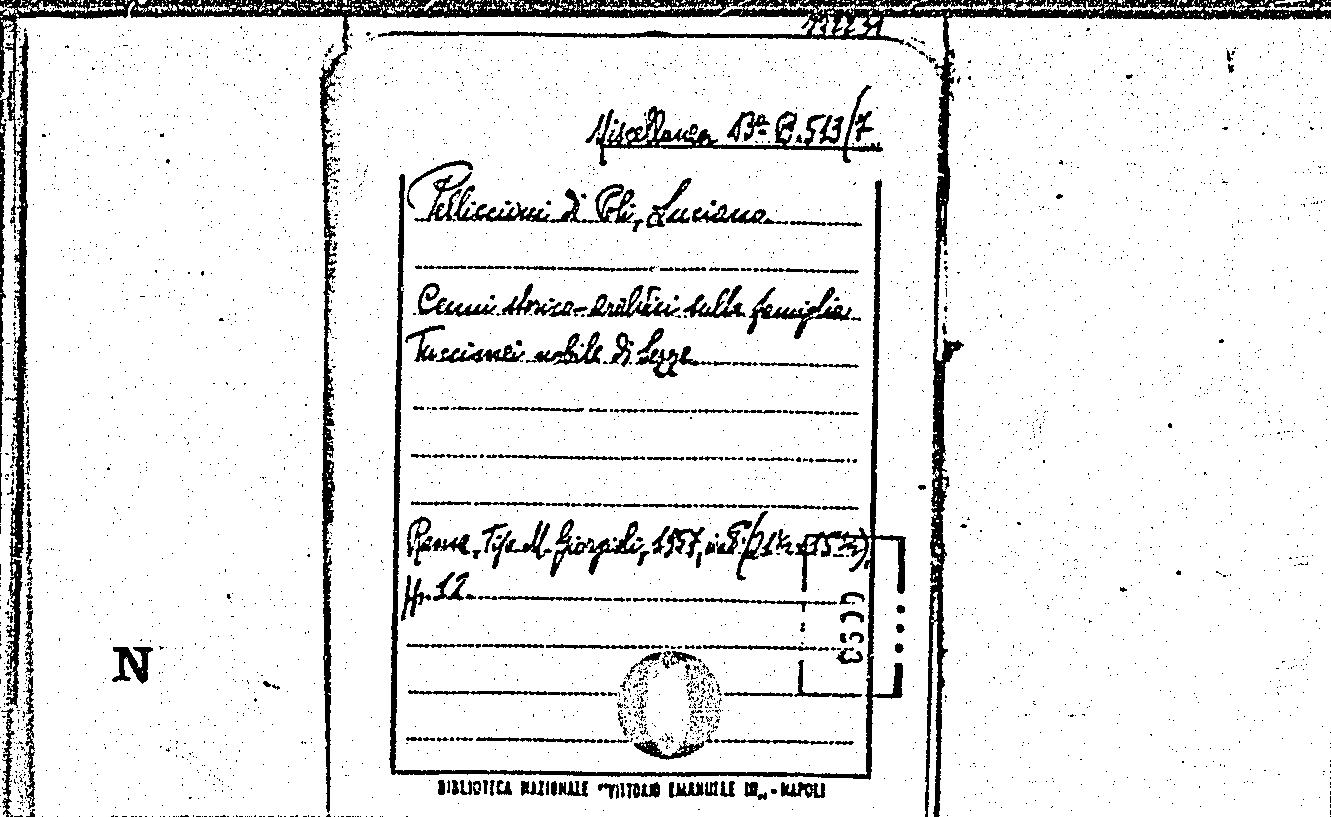 Miscellanea Ba B.513/7
Pelliccioni di Poli, Luciano
Cenni storico-araldici sulla famiglia
Tuccimei nobile di Sezze
Roma, Tip. M. Giorgioli, 1957, in 8° (21½ x 15½),
pp. 12.
N
BIBLIOTECA NAZIONALE "VITTORIO EMANUELE III„ - NAPOLI